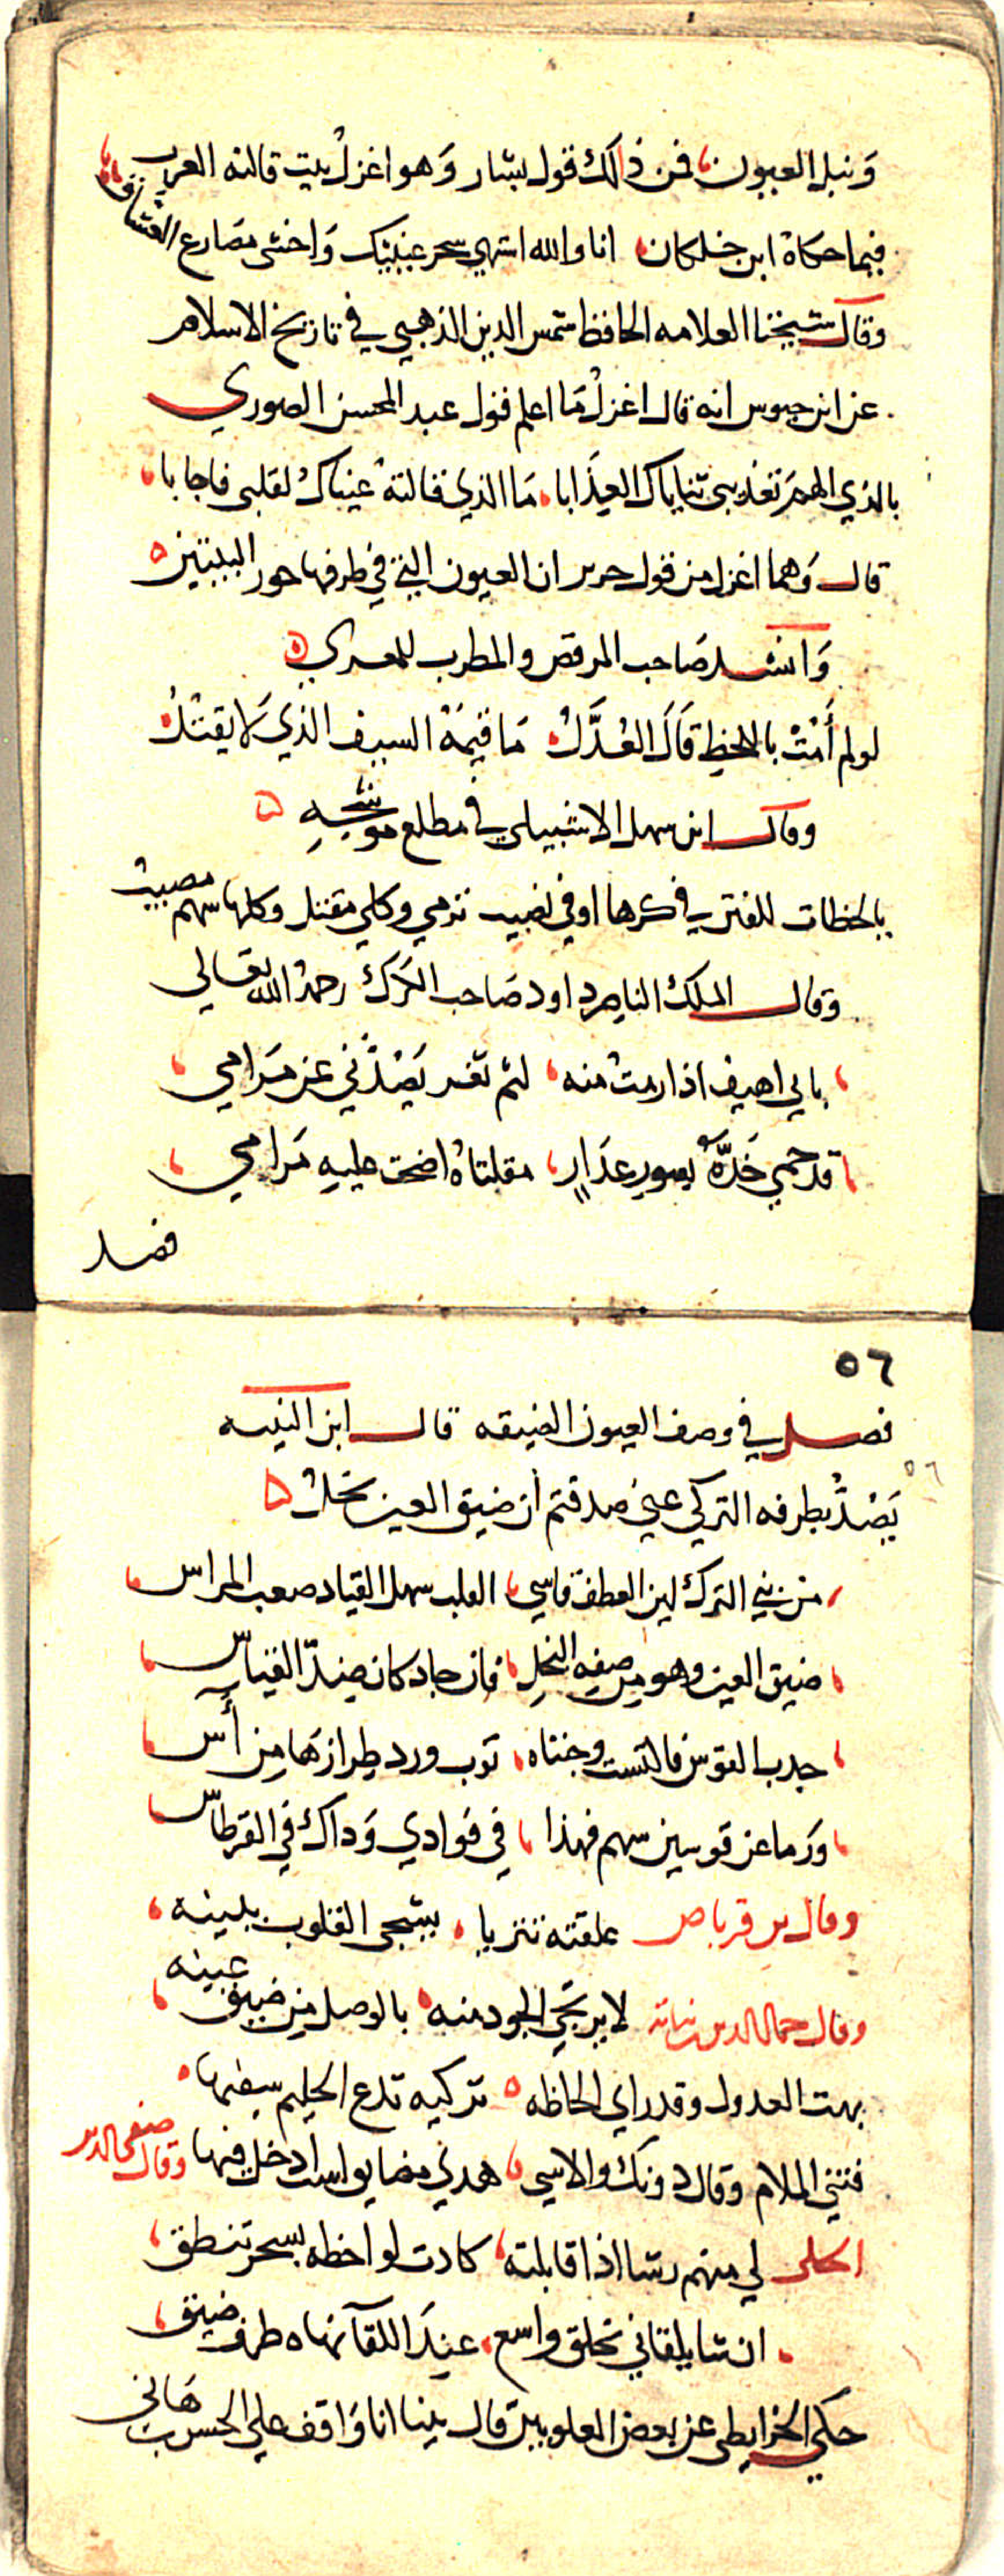 ونبل العيون فمن ذلك قول بشار وهو اغزل بيت قالته العرب
فيما حكاه ابن خلكان انا والله اشتهي سحر عينيك واخشى مصارع العشاق
وقال شيخنا العلامه الحافظ شمس الدين الذهبي في تاريخ الاسلام
عن ابن حيوس انه قال اغزل ما اعلم قول عبد المحسن الصوري
بالذي الهم تعذيبي ثناياك العذابا ما الذي قالته عيناك لقلبي فاجابا
قال وهما اغزل من قول جرير ان العيون التي في طرفها حور البيتين
وانشد صاحب المرقص والمطرب للمعري
لو لم أمت باللحظ قال العذل ما قيمة السيف الذي لا يقتل
وقال ابن سهل الاشبيلي في مطلع موشحه
يا لحظات للفتن في كرها اوفى نصيب ترمي وكلي مقتل وكلها سهم مصيب
وقال الملك الناصر داود صاحب الكرك رحمه الله تعالى
بابي اهيف اذا رمت منه لثم ثغر يصدني عن مرامي
قد حمى خده بسور عذار مقلتاه اضحت عليه مرامي
فصل
٥٦
فصل في وصف العيون الضيقه قال ابن النبيه
٥٦
يصد بطرفه التركي عني صدقتم أن ضيق العين بخل
من بني الترك لين العطف قاسي القلب سهل القياد صعب المراس
ضيق العين وهو من صفه البخل فان جاد كان ضد القياس
جدب القوس فاكتست وجنتاه ثوب ورد طرازها من أس
ورما عن قوسين سهم فهذا في فوادي وداك في القرطاس
وقال بن قرناص علقته تتريا يشجي القلوب بلينه
لا يرتجى الجود منه بالوصل من ضيق عينه
وقال جمال الدين نباته
بهت العدول وقد راي الحاظه تركيه تدع الحليم سفيها
فثنى الملام وقال دونك والاسى هدي مضايق لست ادخل فيها وقال صفي الدين
الحلي لي منهم رشا اذا قابلته كادت لواحظه بسحر تنطق
ان شا يلقاني بخلق واسع عند اللقا نهاه طرف ضيق
حكى الخرايطي عن بعض العلويين قال بينا انا واقف على الجسر